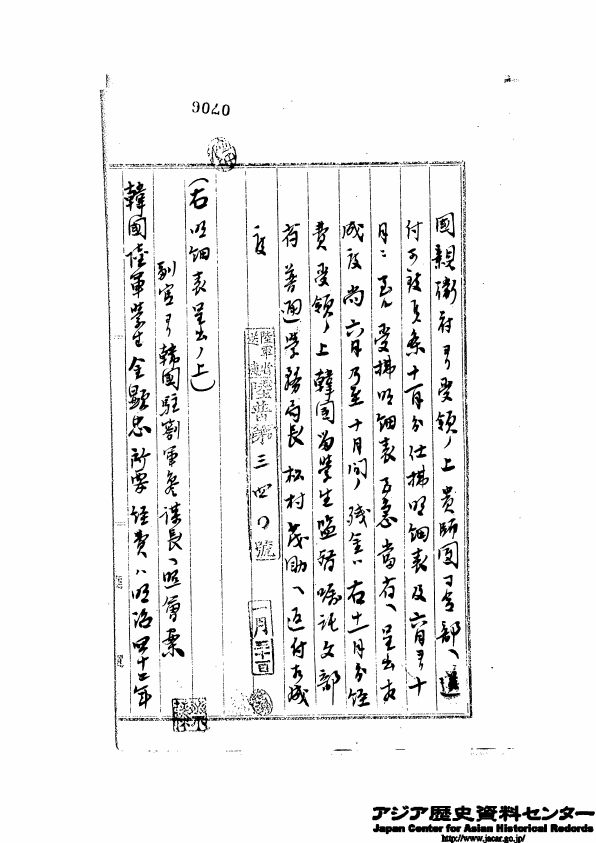 0706
國親衛府ヨリ受領ノ上貴師團司令部ヘ送
付可致候条十一月分仕拂明細表及六月ヨリ十
月ニ至ル受拂明細表至急當省ヘ呈出相
成度尚六月乃至十月間ノ残金ハ右十一月分経
費受領ノ上韓国留学生監督嘱託文部
省普通学務局長松村茂助ヘ返付相成
度
陸軍省送達 陸普第三四〇號 一月三十一日
(右明細表呈出ノ上)
副官ヨリ韓国駐劄軍参謀長ヘ照會案
韓國陸軍学生金顕忠所要経費ハ明治四十二年
アジア歴史資料センター
Japan Center for Asian Historical Records
http://www.jacar.go.jp/